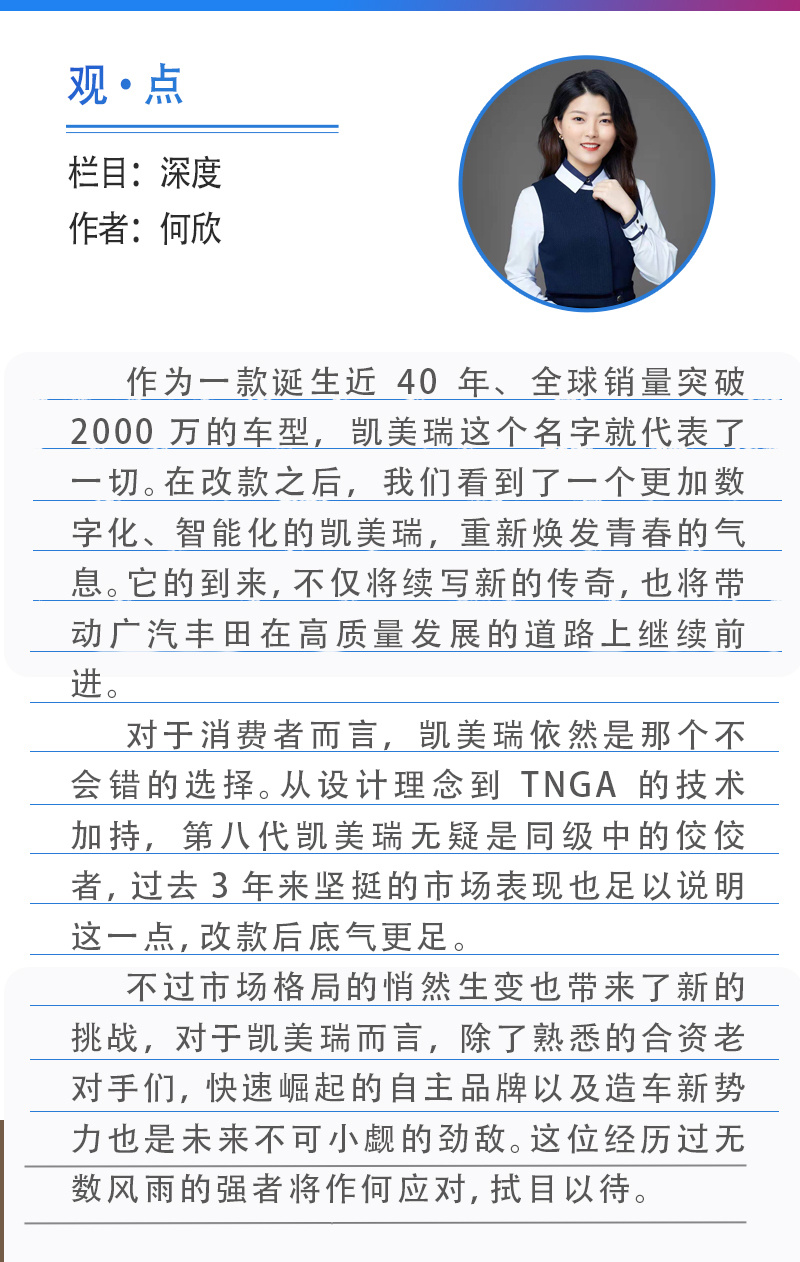 观·点
栏目：深度
作者：何欣
作为一款诞生近 40 年、全球销量突破
2000 万的车型，凯美瑞这个名字就代表了
一切。在改款之后，我们看到了一个更加数
字化、智能化的凯美瑞，重新焕发青春的气
息。它的到来，不仅将续写新的传奇，也将带
动广汽丰田在高质量发展的道路上继续前
进。
对于消费者而言，凯美瑞依然是那个不
会错的选择。从设计理念到 TNGA 的技术
加持，第八代凯美瑞无疑是同级中的佼佼
者，过去 3 年来坚挺的市场表现也足以说明
这一点，改款后底气更足。
不过市场格局的悄然生变也带来了新的
挑战，对于凯美瑞而言，除了熟悉的合资老
对手们，快速崛起的自主品牌以及造车新势
力也是未来不可小觑的劲敌。这位经历过无
数风雨的强者将作何应对，拭目以待。